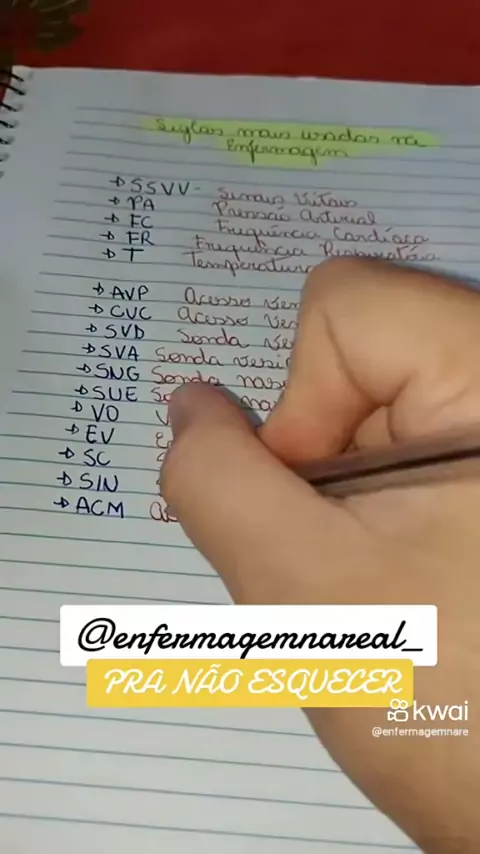 Siglas mais usadas na
Enfermagem
→ SSVV - Sinais Vitais
→ PA Pressão Arterial
→ FC Frequência Cardíaca
→ FR Frequência Respiratória
→ T Temperatura
→ AVP Acesso
→ CVC Acesso
→ SVD Sonda
→ SVA Sonda
→ SNG Sonda
→ SUE
→ VO
→ EV
→ SC
→ SIN
→ ACM
@enfermagemnareal_
PRA NÃO ESQUECER
kwai
@enfermagemnare